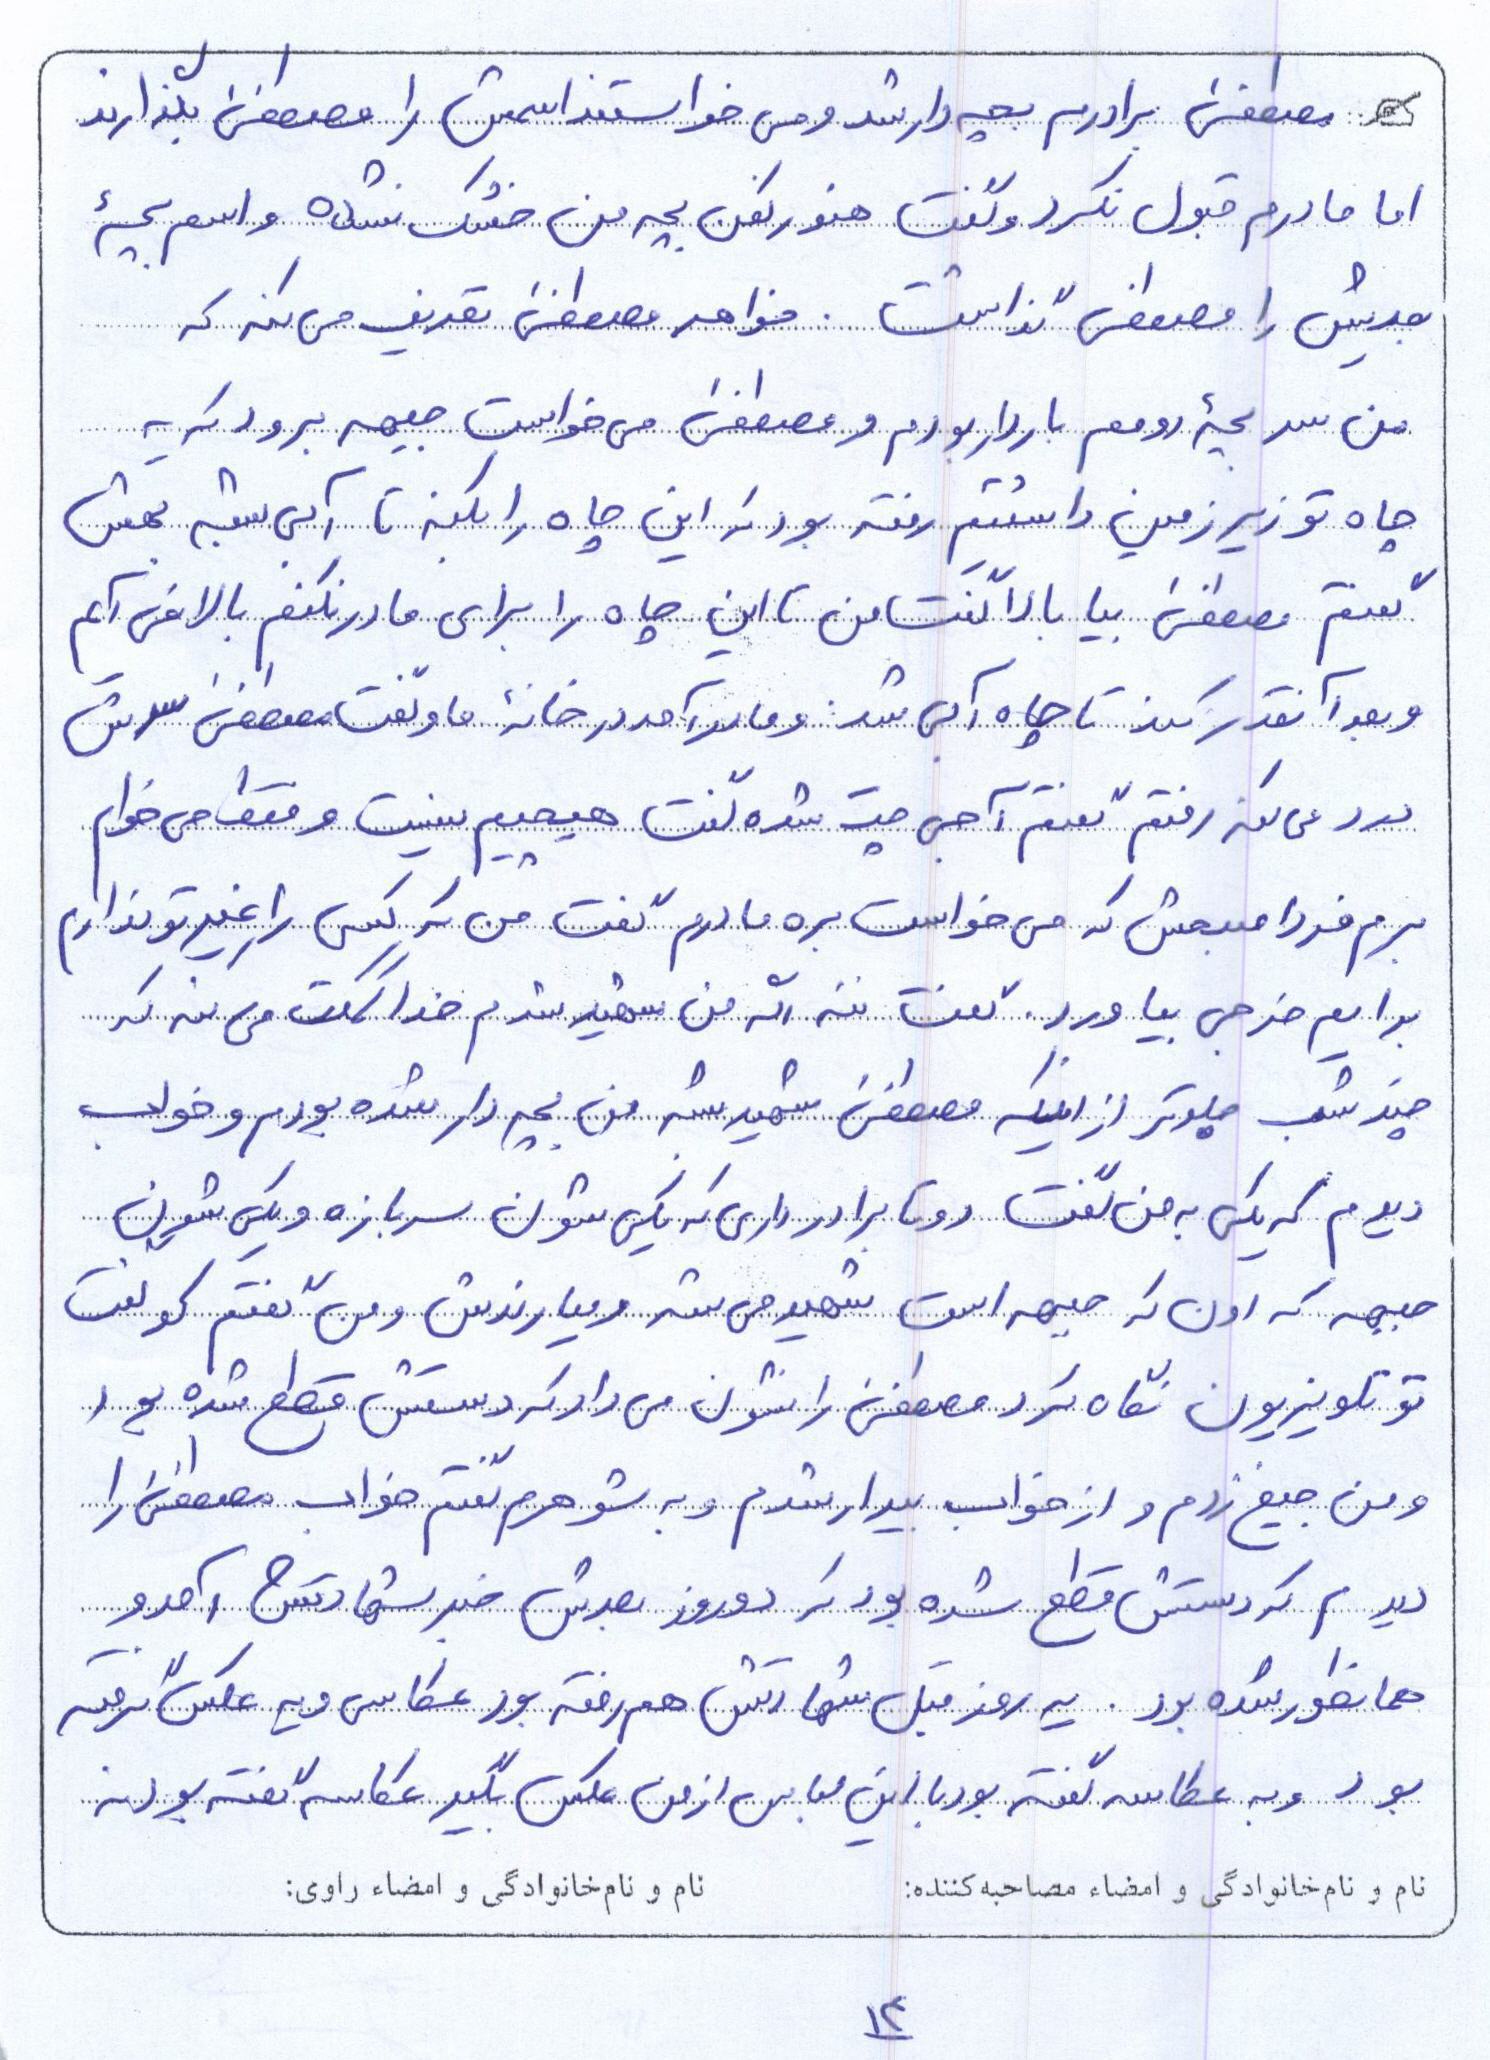 مصطفی برادرم بچه دار شد و می خواستند اسمش را مصطفی بگذارند
اما مادرم قبول نکرد و گفت هنوز کفن بچه من خشک نشده و اسم بچۀ
بعدیش را مصطفی گذاشت . خواهر مصطفی تعریف می کنه که
من سر بچۀ دومم باردار بودم و مصطفی می خواست جبهه برود که یه
چاه تو زیرزمین داشتیم رفته بود که این چاه را بکنه تا آبی بشه بهش
گفتم مصطفی بیا بالا گفت من تا این چاه را برای مادر نکنم بالا نمی آیم
و بعد آنقدر کند تا چاه آبی شد و مادر آمد در خانۀ ما و گفت مصطفی سرش
درد می کنه رفتم گفتم آجی چت شده گفت هیچیم نیست و فقط می خوام
برم فردا صبحش که می خواست بره مادرم گفت من که کسی را غیر تو ندارم
برایم خرجی بیاورد. گفت ننه اگه من شهید شدم خدا کمکت می کنه که
چند شب جلوتر از اینکه مصطفی شهید بشه من بچه دار شده بودم و خواب
دیدم که یکی به من گفت دو تا برادر داری که یکی شون سربازه و یکی شون
جبهه که اون که جبهه است شهید می شه و میارندش و من گفتم کو گفت
تو تلویزیون نگاه کرد مصطفی را نشون می داد که دستش قطع شده بود
و من جیغ زدم و از خواب بیدار شدم و به شوهرم گفتم خواب مصطفی را
دیدم که دستش قطع شده بود که دو روز بعدش خبر شهادتش آمد و
همانطور شده بود . یه روز قبل شهادتش هم رفته بود عکاسی و یه عکس گرفته
بود و به عکاسه گفته بود با این لباس از من عکس بگیر عکاسه گفته بود نه
نام و نام‌خانوادگی و امضاء مصاحبه‌کننده: نام و نام‌خانوادگی و امضاء راوی:
۱۴